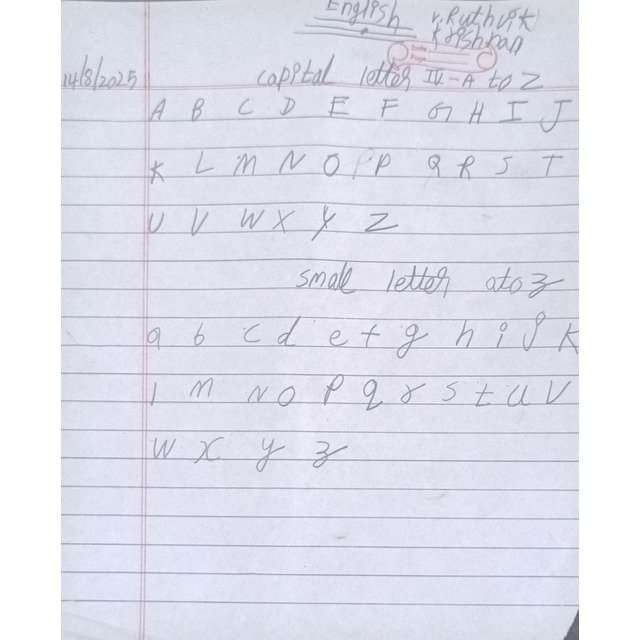 English
V. Ruthvik
Krishnan
Date
Page
14/8/2025 capital letter IV-A to Z
A B C D E F G H I J
K L M N O P P Q R S T
U V W X Y Z
small letter a to z
a b c d e f g h i j k
l m n o p q r s t u v
w x y z